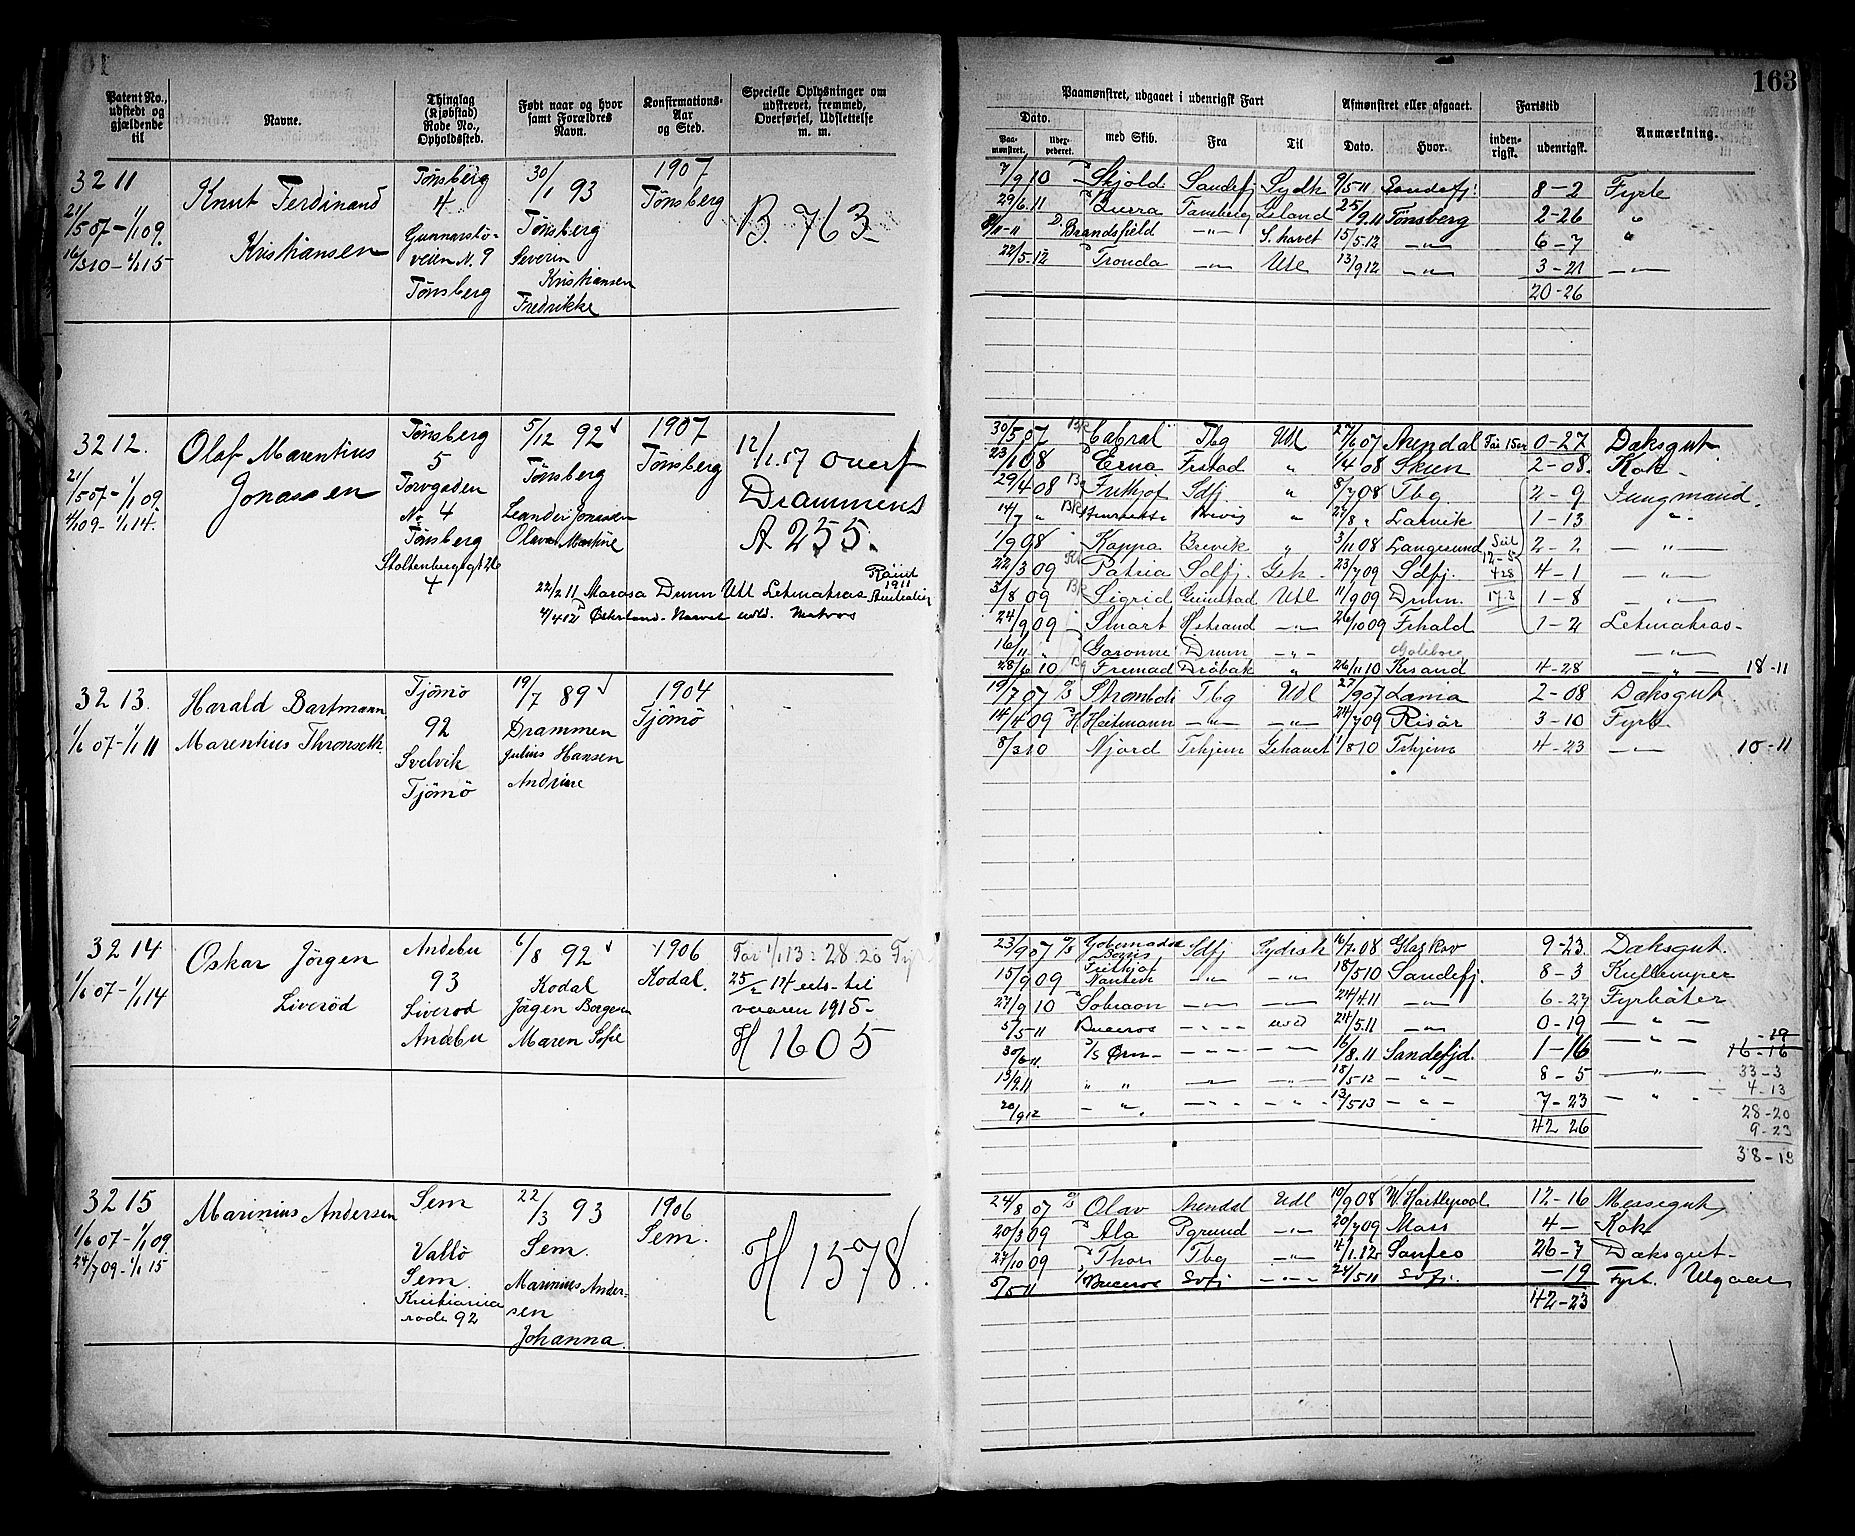 163
Patent No., udstedt og gjældende til
Navne.
Thinglag (Kjøbstad) Rode No., Opholdssted.
Født naar og hvor samt Forældres Navn.
Konfirmations-Aar og Sted.
Specielle Oplysninger om udskrevet, fremmed, Overførsel, Udslettelse m. m.
Paamønstret, udgaaet i udenrigsk Fart
Afmønstret eller afgaaet.
Fartstid
Anmærkning.
Dato.
Paamønstret.
med Skib.
Fra
Til
Dato.
Hvor.
indenrigsk.
udenrigsk.
3211
21/5 07 - 1/1 09.
16/3 10 - 1/1 15
Knut Ferdinand
Kristiansen
Tønsberg
4
Gunnarsbø-
veien N. 9
Tønsberg
30/1 93
Tønsberg
Severin
Kristiansen
Fredrikke
1907
Tønsberg
B. 763
7/9 10 Skjold Sandefj Sydh 9/5 11 Sandefj: 8-2 Fyrb
29/6.11 Tønsberg Island 25/9.11 Tønsberg 2-26 "
D. Brandsfield -"- S. havet 15/5.12 -"- 6-7 "
22/5.12 Tronda -"- Utl 13/9 12 -"- 3-21 -"-
20-26
3212.
21/5 07 - 1/1 09.
4/1 09 - 1/1 14.
Olaf Marentius
Jonassen
Tønsberg
5
Torvgaden
No 4
Tønsberg
Stoltenbergsgt 26
4
5/12 92
Tønsberg
Leander Jonassen
Olava Martine
1907
Tønsberg
12/1.57 overf
Drammens
A 255.
22/2 11 Marosa Drmn Utl Letmatros
Rømt 1911 Australien
4/4 12 Østerland - Narvik udl. Matros
30/5.07 Bk Cabral Tbg Utl 27/6 07 Arendal 0-27 Dæksgut
23/1 08 Erna Frstad " 1/4 08 Skien 2-08. Kok
29/4 08 Frithjof Sdfj " 8/7 08 Tbg 2-9 Jungmand
14/7 " Brevig " 27/8 " Larvik 1-13 "
1/9 08 Kappa Brevik " 3/11 08 Langesund 2-2 -"-
22/3 09 Patria Sdfj. 23/7 09 Sdfj. 4-1 -"-
3/8 09 Bk Sigrid Grimstad Utl 11/9 09 Drmn. 1-8 -"-
24/9 09 Smart Hstrand -"- 26/10 09 Frhald 1-2 Letmatros
16/11 " Garonne Drmn -"- -"-
28/6 10 Fremad Drøbak " 26/11 10 Krsand 4-28 -"- 18-11
3213.
1/6 07 - 1/1 11
Harald Bartmann
Marentius Thronseth
Tjömö
92
Svelvik
Tjömö
19/7 89
Drammen
Julius Hansen
Andrine
1904
Tjömö
19/7 07 Stromboli Tbg Udl 27/9 07 2-08 Dæksgut
14/4 09 H Heitmann -"- -"- 24/7 09 Risör 3-10 Fyrb
8/3 10 Njord Trhjem Ishavet 1/8 10 Trhjem 4-23 -"- 10-11
3214
1/6 07 - 1/1 14
Oskar Jörgen
Liveröd
Andebu
93
Liverod
Andebu
6/8 92
Kodal
Jörgen Borgersen
Maren Sofie
1906
Kodal.
Far 1/1 13: 28-20
25/- 14 uds. til
vaaren 1915-
H 1605
23/9 07 Sdfj Sydish 16/7.08 Glaskov 9-23. Dæksgut.
15/9 09 Frithjof -"- -"- 18/5 10 Sandefj. 8-3 Kullemper
27/9 10 Sobraon -"- -"- 24/4.11 -"- 6-27 Fyrbøter
5/5 11 Buceros -"- 24/5.11 -"- 0-19 -"-
30/6 11. S/S Ørn -"- -"- 16/8.11 Sandefjd. 1-16 -"-
13/9.11 " " -"- -"- 18/5-12 -"- 8-5 -"-
20/9 12 -"- -"- -"- 13/5 13 -"- 7-23 -"-
42 26
-19
16-16
33-3
4-13
28-20
9-23
38-13
3215
1/6 07 - 1/1 09.
24/7 09 - 1/1 15
Marinius Andersen
Sem
Vallö
Sem.
Kristiania
rode 92
22/3 93
Sem.
Marinius Ander-
sen
Johanna.
1906
Sem.
H 1578
24/8 07 Olav Arendal Udl 10/9 08 W. Hartlepool 12-16 Messegut
20/3 09 Ala Pgrund -"- 20/7 09 Moss 4- Kok
27/10 09 Thor Tbg -"- 4/1.12 26-7 Dæksgut
5/5 11 Buceros Sdfj -"- 24/5 11 Sdfj. -19 Fyrb.
42-23